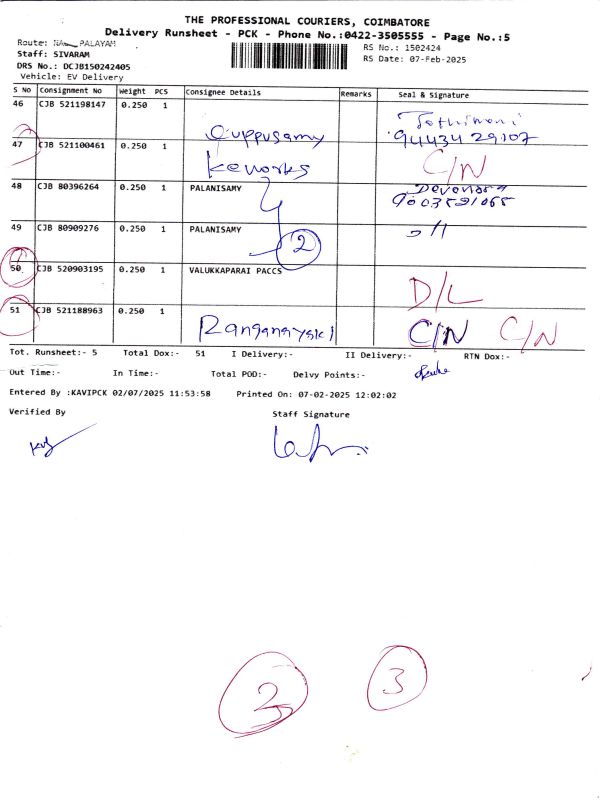 THE PROFESSIONAL COURIERS, COIMBATORE
Delivery Runsheet - PCK - Phone No.:0422-3505555 - Page No.:5
Route: PALAYAM
RS No.: 1502424
Staff: SIVARAM
RS Date: 07-Feb-2025
DRS No.: DCJB150242405
Vehicle: EV Delivery
S No Consignment No Weight PCS Consignee Details Remarks Seal & Signature
46 CJB 521198147 0.250 1
Cuppusamy 94434 29107
47 CJB 521100461 0.250 1
C/N
48 CJB 80396264 0.250 1 PALANISAMY
49 CJB 80909276 0.250 1 PALANISAMY
2
50 CJB 520903195 0.250 1 VALUKKAPARAI PACCS
D/L
51 CJB 521188963 0.250 1
C/N C/N
Tot. Runsheet:- 5 Total Dox:- 51 I Delivery:- II Delivery:- RTN Dox:-
Out Time:- In Time:- Total POD:- Delvy Points:-
Entered By :KAVIPCK 02/07/2025 11:53:58 Printed On: 07-02-2025 12:02:02
Verified By Staff Signature
3